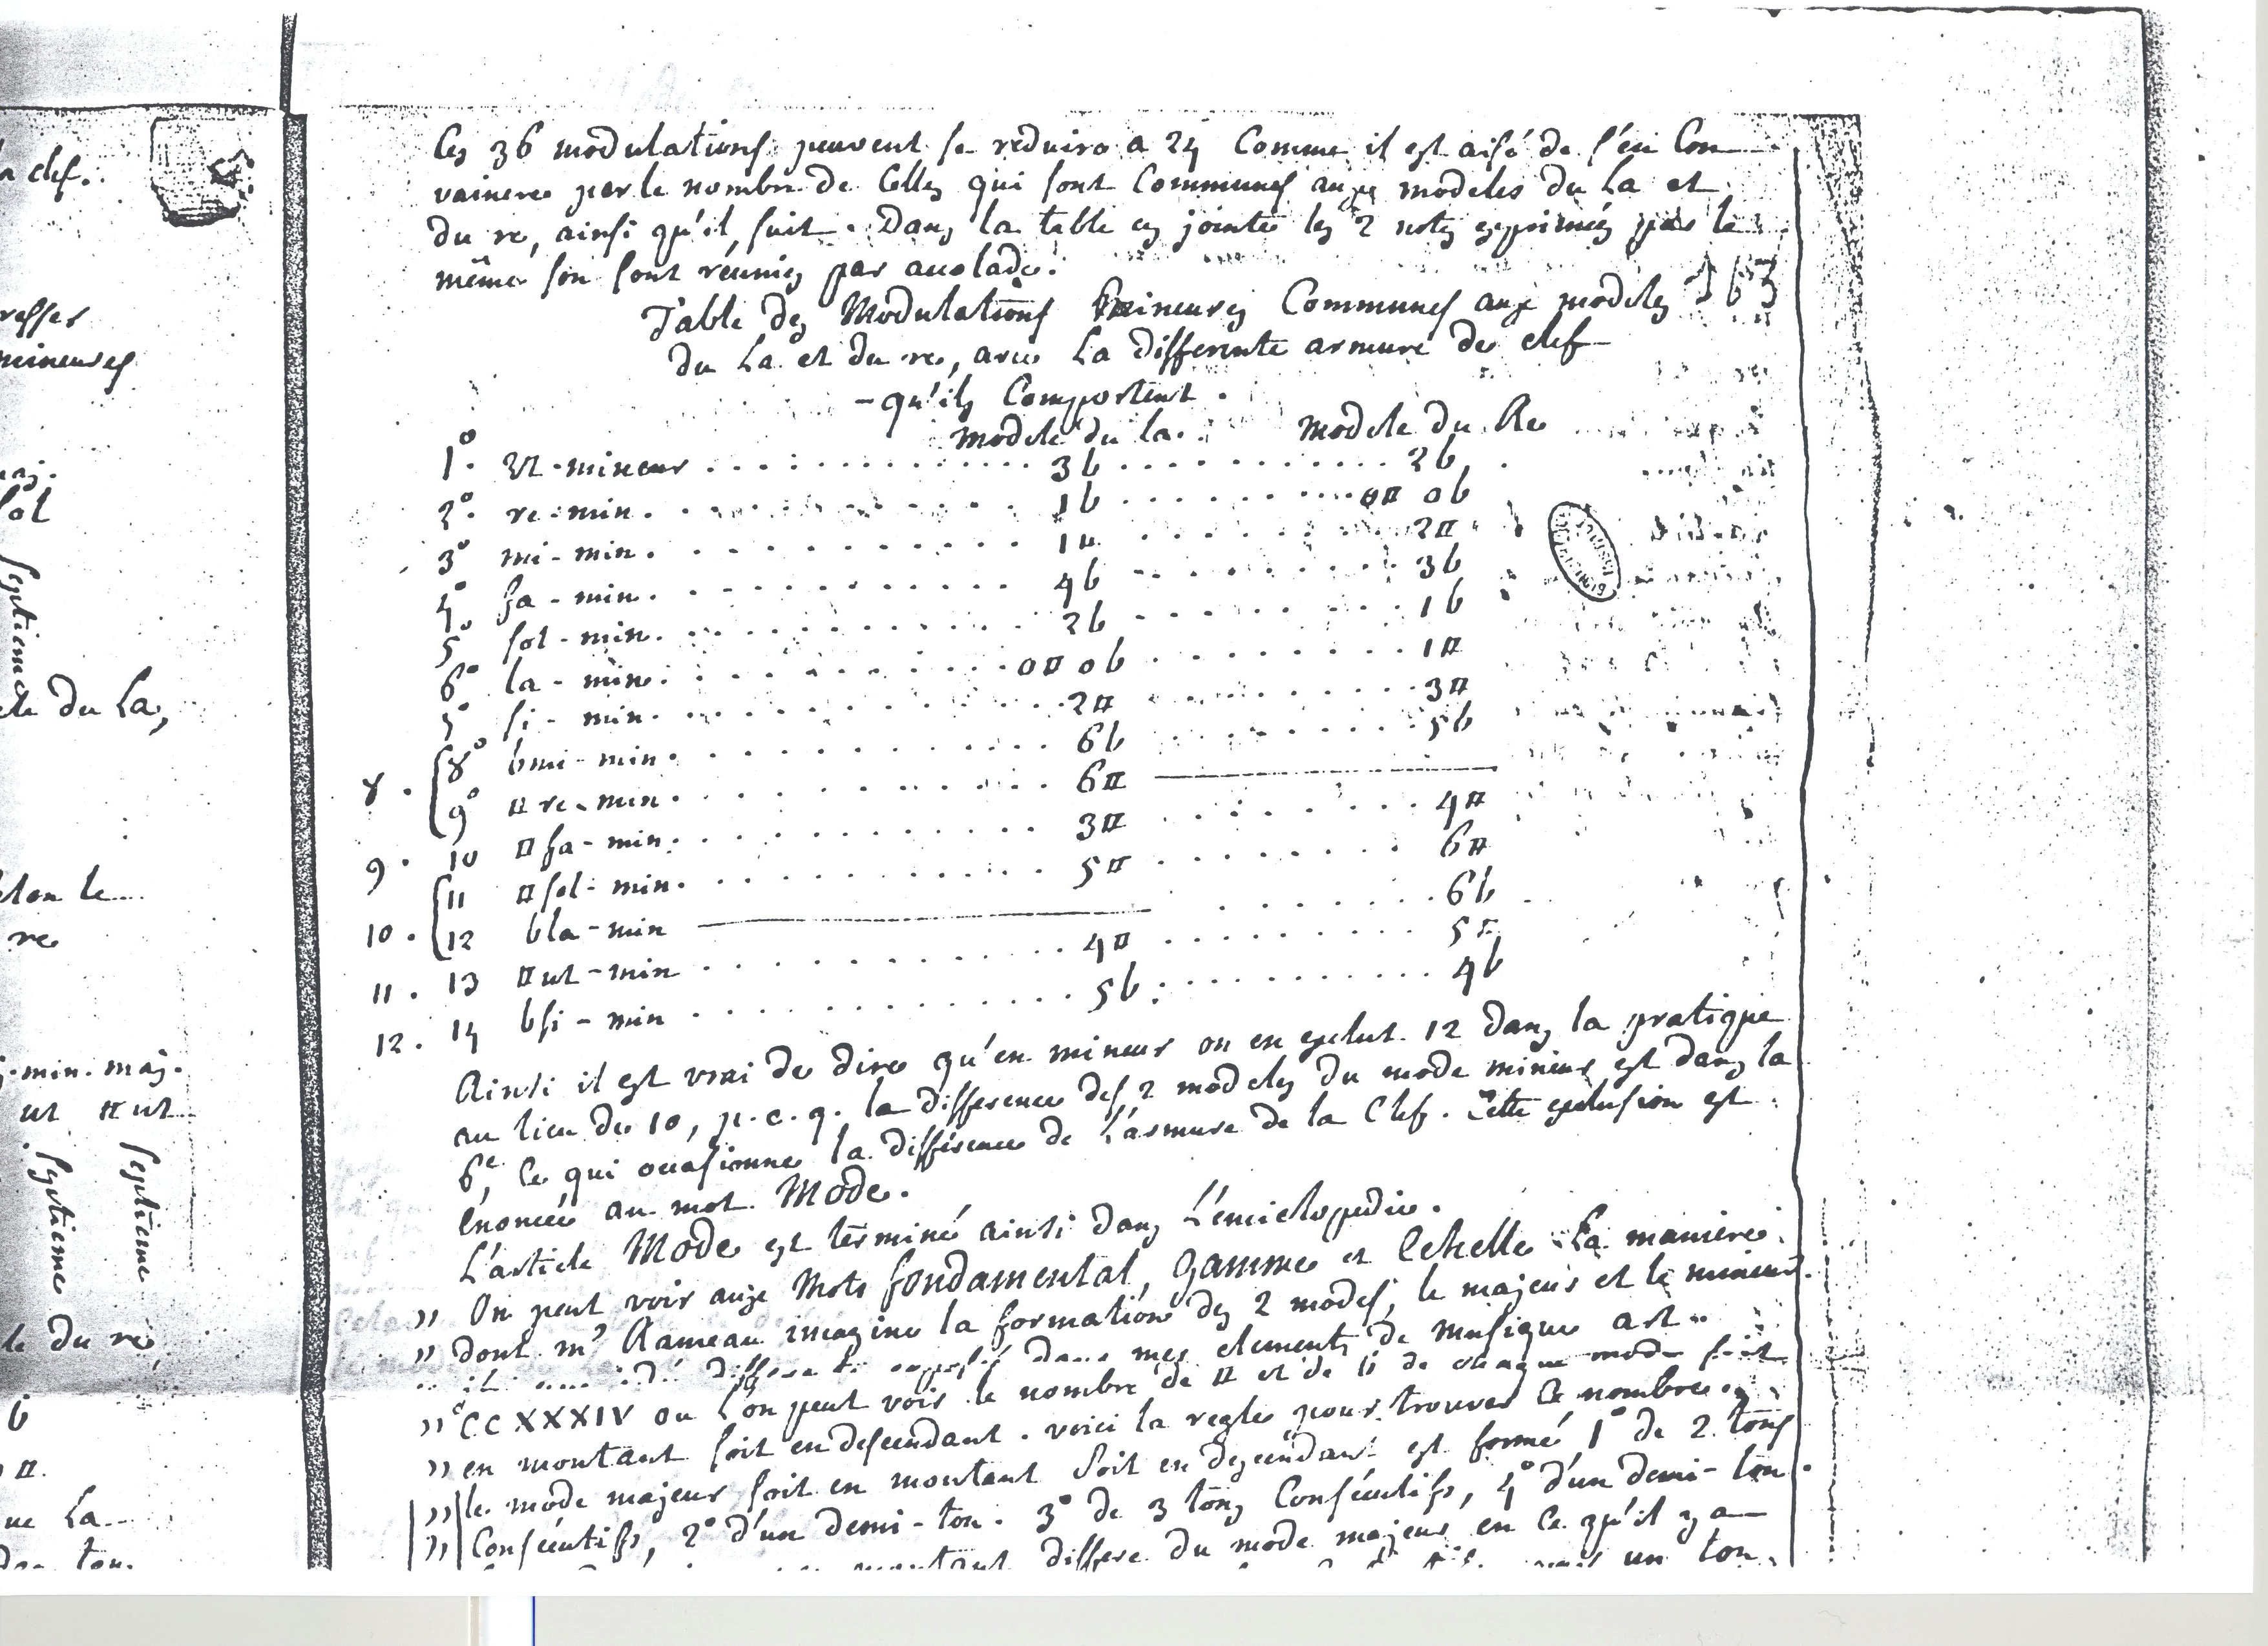 a clef.
resses
mineures
maj.
sol
septieme
du La,
selon le
re
min. maj.
ut ♯ut
septieme
septieme
le du re
b
♯.
ue La
ton.
Ces 36 modulations peuvent se reduire a 24 Comme il est aisé de s'en Con
vaincre par le nombre de Celles qui sont Communes aux modeles du La et
du re, ainsi qu'il suit. Dans la table cy jointe les 2 notes exprimées par le
même son sont réunies par accolade.
163
Table des Modulations Mineures Communes aux modeles
du La et du re, avec La differente armure de clef
- qu'ils Comportent.
modele du la. modele du Re
1° Ut-mineur . . . 3b . . . 2b
2° re-min. . . . 1b . . . 0♯ 0b
3° mi-min. . . . 1♯ . . . 2♯
4° fa-min. . . . 4b . . . 3b
5° sol-min. . . . 2b . . . 1b
6° la-min. . . . 0♯ 0b . . . 1♯
7° si-min. . . . 2♯ . . . 3♯
8. { 8° bmi-min. . . . 6b . . . 5b
9° ♯re-min. . . . 6♯ ———
9. 10 ♯fa-min. . . . 3♯ . . . 4♯
10. { 11 ♯sol-min. . . . 5♯ . . . 6♯
12 bla-min ——— . . . 6b
11. 13 ♯ut-min . . . 4♯ . . . 5♯
12. 14 bsi-min . . . 5b . . . 4b
Ainsi il est vrai de dire qu'en mineur on en exclut 12 dans la pratique
au lieu de 10, p.c.q. la difference des 2 modeles du mode mineur est dans la
6e, Ce qui occasionne la différence de L'armure de la Clef. Cette exclusion est
énoncée au mot Mode.
L'article Mode est terminé ainsi dans L'enciclopedie.
" On peut voir aux Mots fondamental, gamme et Echelle La maniere
" dont mr Rameau imagine la formation des 2 modes, le majeur et le mineur.
" dans mes elements de musique art.
" CCXXXIV ou L'on peut voir le nombre de ♯ et de b de chaque mode soit
" en montant soit en descendant. voici la regle pour trouver Ce nombre.
" le mode majeur soit en montant soit en descendant est formé 1° de 2 tons
" Consécutifs, 2° d'un demi-ton. 3° de 3 tons Consécutifs, 4° d'un demi-ton.
montant differe du mode majeur en Ce qu'il y a
un ton